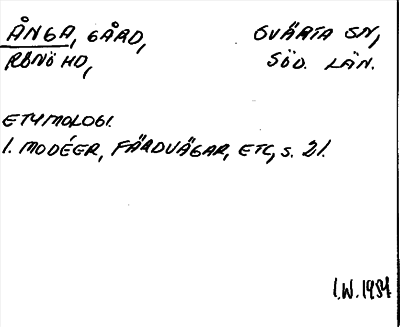 ÅNGA, GÅRD, SVÄRTA SN,
RÖNÖ HD, SÖD. LÄN.
ETYMOLOGI.
I. MODÉER, FÄRDVÄGAR, ETC, s. 21.
I.W. 1984